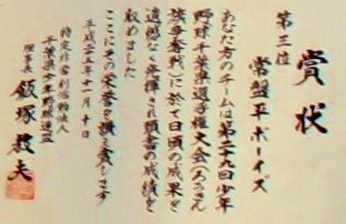 賞状
第三位
常盤平ボーイズ
あなた方のチームは第二九回少年
野球千葉県選手権大会(ろうきん
旗争奪戦)に於て日頃の成果を
遺憾なく発揮され頭書の成績を
収めました
ここにその栄誉を讃え賞します
平成二五年十一月十日
特定非営利活動法人
千葉県少年野球連盟
理事長 飯塚教夫